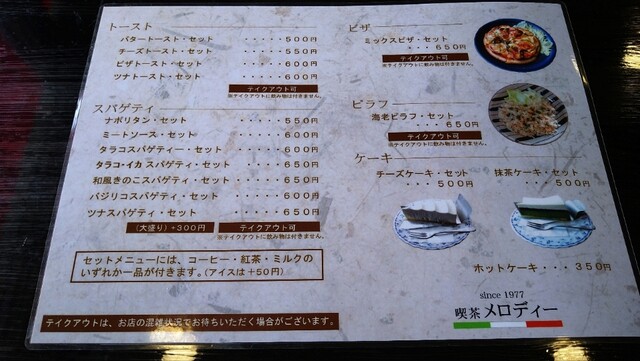 トースト
バタートースト・セット ・・・・・500円
チーズトースト・セット ・・・・・550円
ピザトースト・セット ・・・・・600円
ツナトースト・セット ・・・・・600円
テイクアウト可
※テイクアウトに飲み物は付きません。
スパゲティ
ナポリタン・セット ・・・・・550円
ミートソース・セット ・・・・・600円
タラコスパゲティー・セット ・・・・・600円
タラコ・イカスパゲティ・セット ・・・・・650円
和風きのこスパゲティ・セット ・・・・・650円
バジリコスパゲティ・セット ・・・・・600円
ツナスパゲティ・セット ・・・・・650円
(大盛り)+300円 テイクアウト可
※テイクアウトに飲み物は付きません。
セットメニューには、コーヒー・紅茶・ミルクの
いずれか一品が付きます。(アイスは+50円)
テイクアウトは、お店の混雑状況でお待ちいただく場合がございます。
ピザ
ミックスピザ・セット
・・・650円
テイクアウト可
※テイクアウトに飲み物は付きません。
ピラフ
海老ピラフ・セット
・・・650円
テイクアウト可
※テイクアウトに飲み物は付きません。
ケーキ
チーズケーキ・セット
・・・500円
抹茶ケーキ・セット
・・・500円
ホットケーキ・・・350円
since 1977
喫茶 メロディー